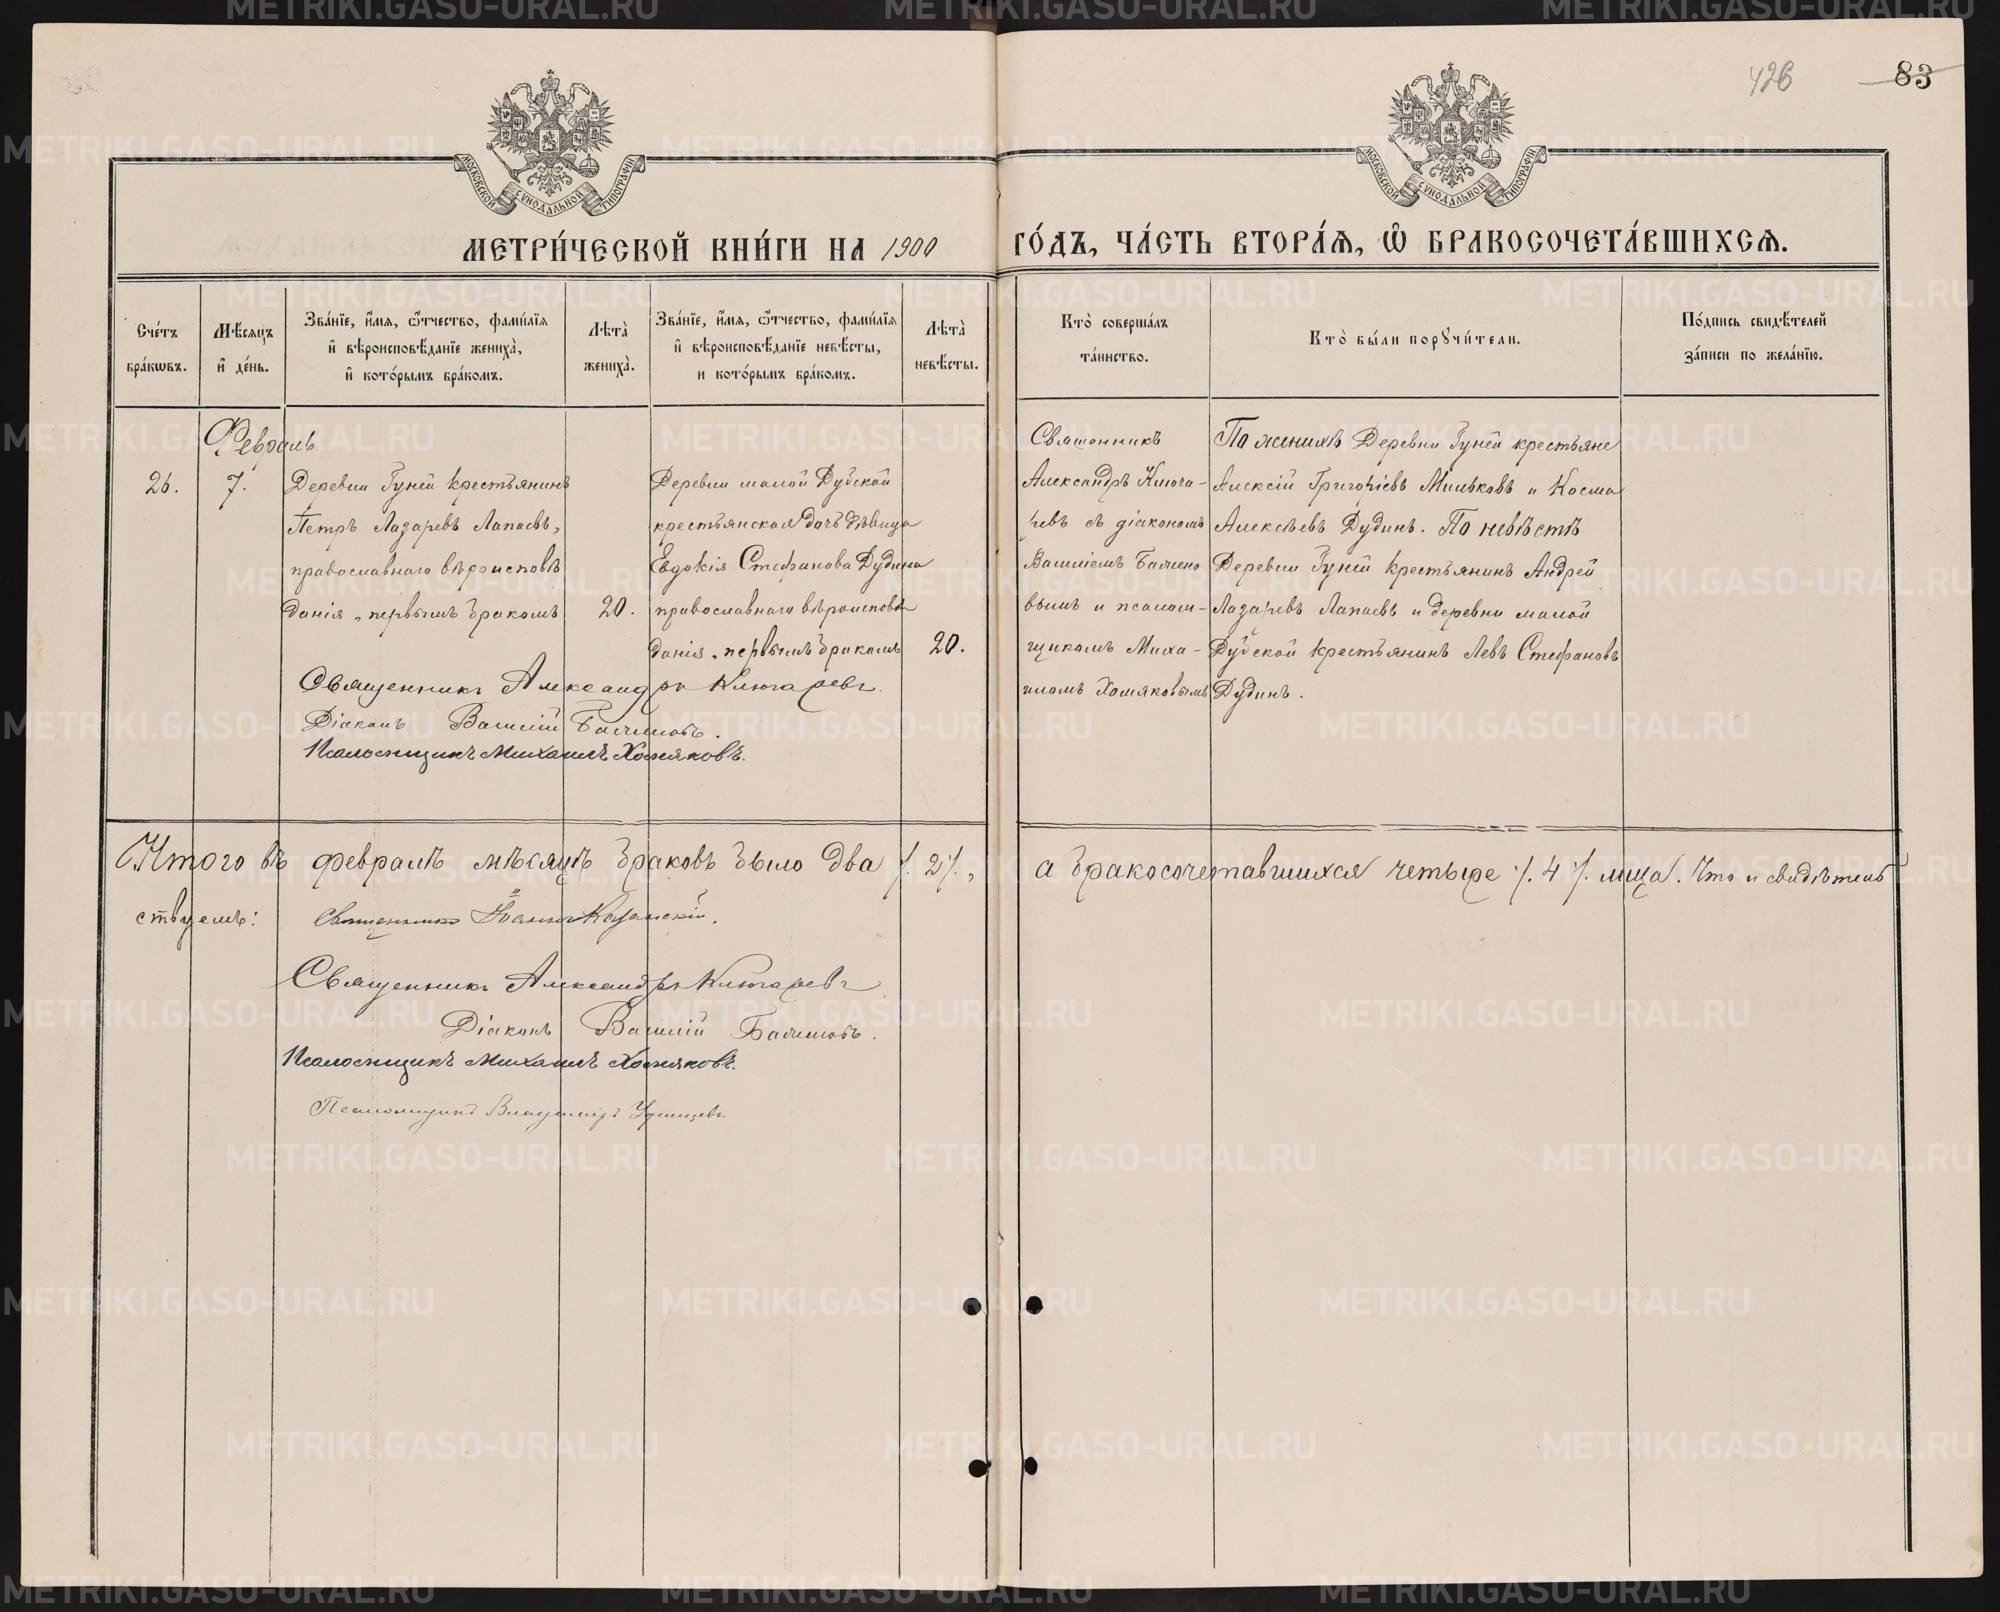 426
83
МОСКОВСКОЙ СѴНОДАЛЬНОЙ ТИПОГРАФІИ
МОСКОВСКОЙ СѴНОДАЛЬНОЙ ТИПОГРАФІИ
МЕТРИ́ЧЕСКОЙ КНИ́ГИ НА 1900 ГО́ДЪ, ЧА́СТЬ ВТОРА́Я, Ѡ БРАКОСОЧЕТА́ВШИХСЯ.
Сче́тъ
бра́кѡвъ.
Мѣ́сяцъ
и҆ де́нь.
Зва́нїе, и҆́мя, ѻ҆́тчество, фами́лїя
и҆ вѣроисповѣ́данїе жениха̀,
и҆ кото́рымъ бра́комъ.
Лѣта̀
жениха̀.
Зва́нїе, и҆́мя, ѻ҆́тчество, фами́лїя
и҆ вѣроисповѣ́данїе невѣ́сты,
и кото́рымъ бра́комъ.
Лѣта̀
невѣ́сты.
Кто̀ соверша́лъ
та́инство.
Кто̀ бы́ли порꙋчи́тели.
По́дпись свидѣ́телей
за́писи по жела́нїю.
Февраль
26.
7.
Деревни Гуней крестьянинъ
Петръ Лазаревъ Лапаевъ,
православнаго вѣроисповѣ
данія, первымъ бракомъ
20.
Деревни малой Дубской
крестьянская дочь дѣвица
Евдокія Стефанова Дудина
православнаго вѣроисповѣ
данія, первымъ бракомъ
20.
Священникъ
Александръ Ключа-
ревъ съ діакономъ
Василіемъ Балшено
вымъ и псалом-
щикомъ Миха-
иломъ Хомяковымъ
По женихѣ Деревни Гуней крестьяне
Алексій Григорьевъ Мильковъ и Косма
Алексѣевъ Дудинъ. По невѣстѣ
Деревни Гуней крестьянинъ Андрей
Лазаревъ Лапаевъ и деревни малой
Дубской крестьянинъ Левъ Стефановъ
Дудинъ.
Священникъ Александръ Ключаревъ.
Діаконъ Василій
Псаломщикъ Михаилъ Хомяковъ.
Итого въ февралѣ мѣсяцѣ браковъ было два ·/. 2 ·/., а бракосочетавшихся четыре ·/. 4 ·/. лица. Что и свидѣтель
ствуемъ:
Священникъ Іоаннъ Казанскій.
Священникъ Александръ Ключаревъ
Діаконъ Василій
Псаломщикъ Михаилъ Хомяковъ.
Псаломщикъ Владиміръ
METRIKI.GASO-URAL.RU